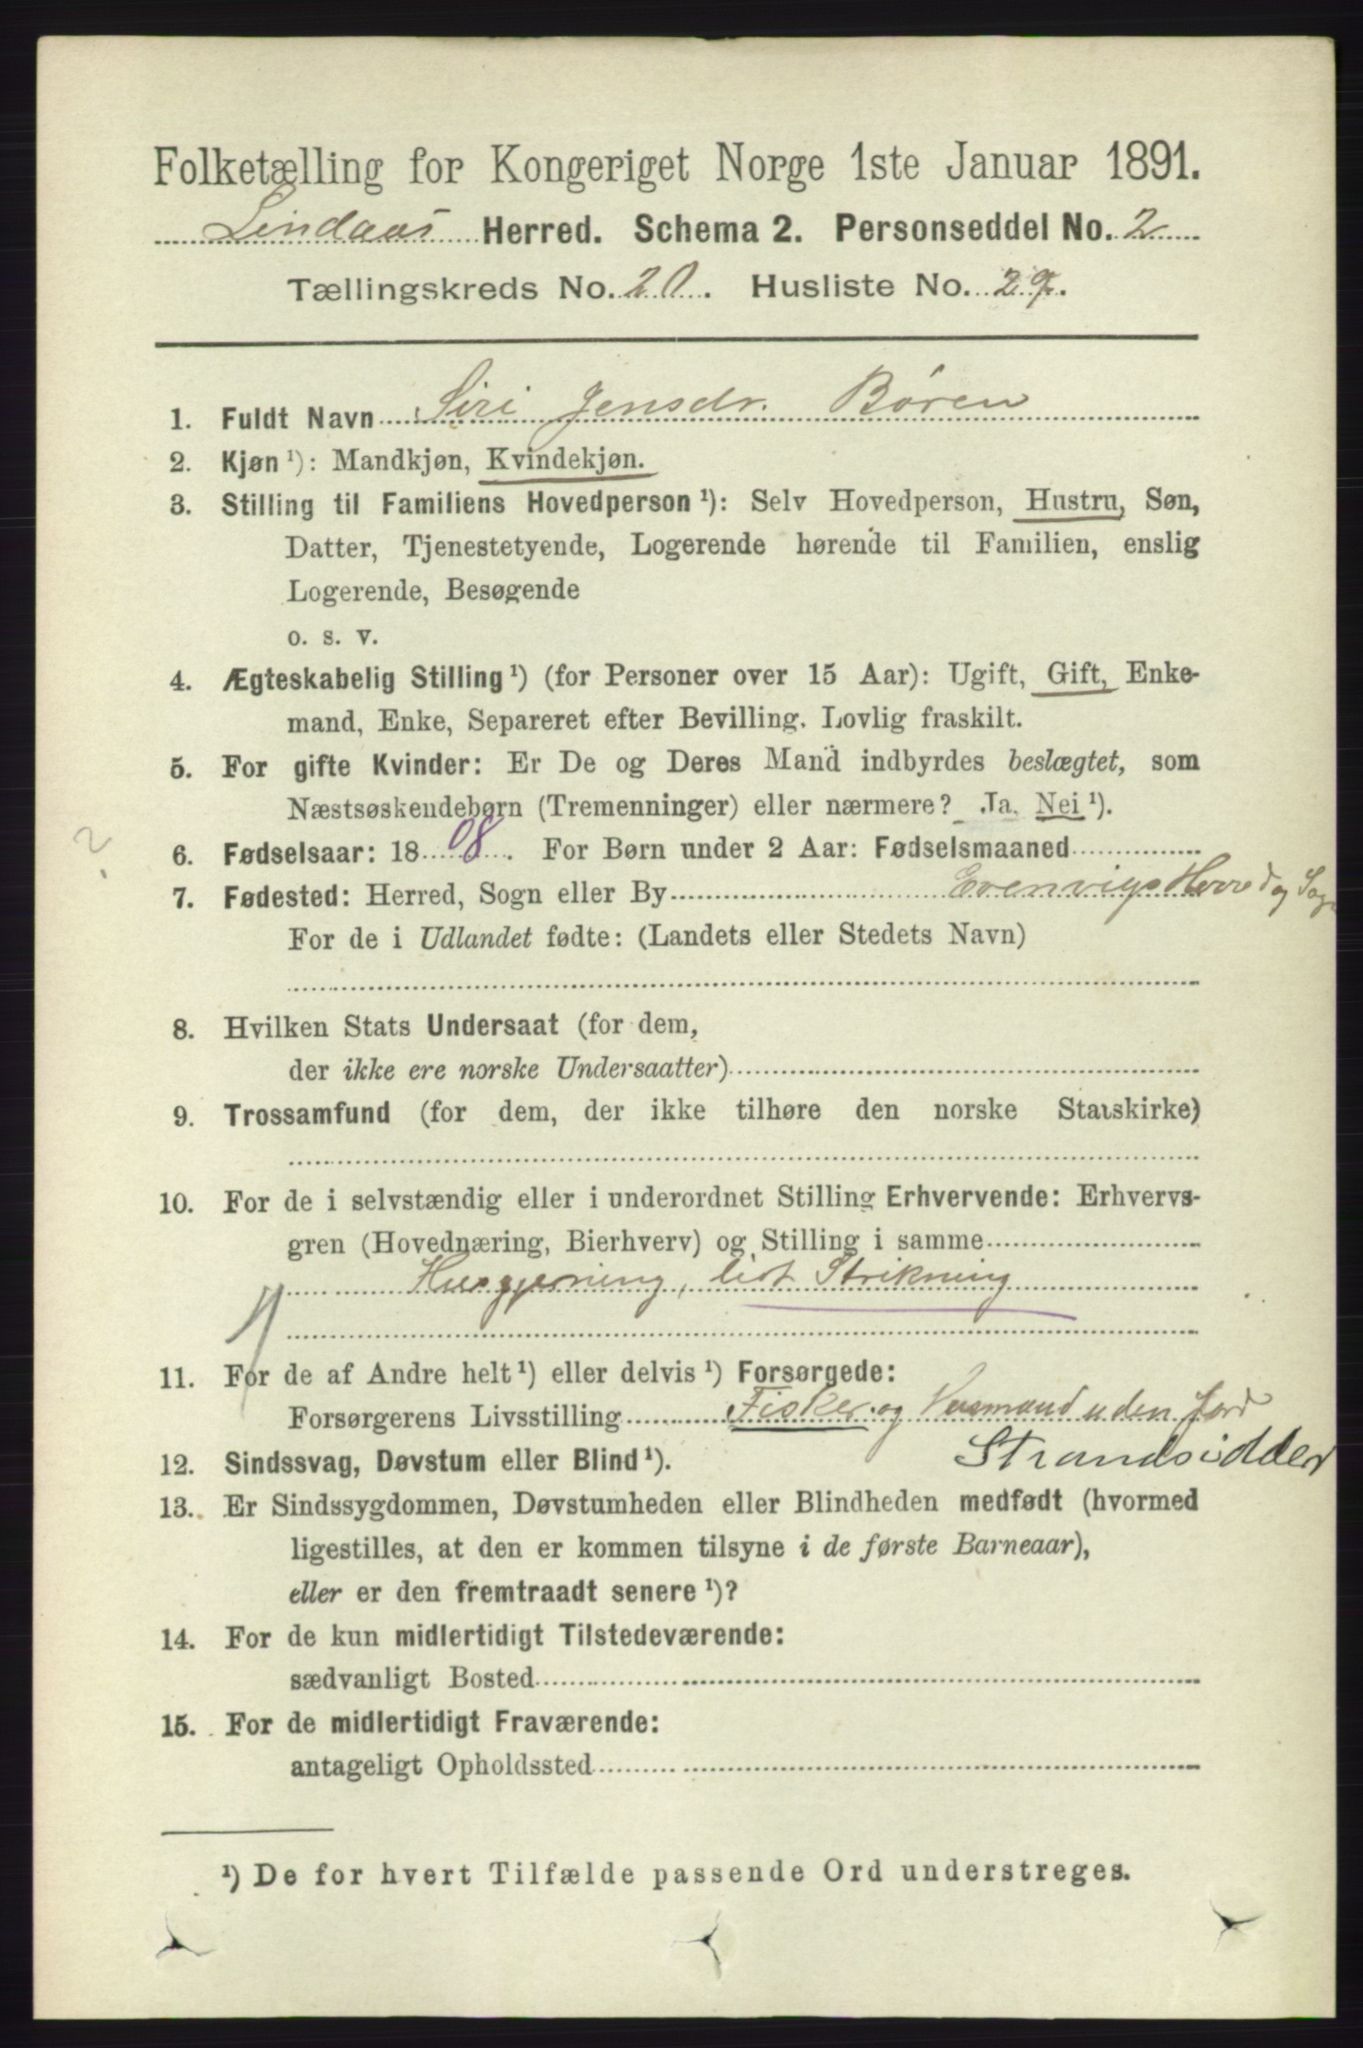 Folketælling for Kongeriget Norge 1ste Januar 1891.
Lindaas Herred. Schema 2. Personseddel No. 2
Tællingskreds No. 20. Husliste No. 29.
1. Fuldt Navn Siri Jensdr. Børen
2. Kjøn ¹): Mandkjøn, Kvindekjøn.
3. Stilling til Familiens Hovedperson ¹): Selv Hovedperson, Hustru, Søn,
Datter, Tjenestetyende, Logerende hørende til Familien, enslig
Logerende, Besøgende
o. s. v.
4. Ægteskabelig Stilling ¹) (for Personer over 15 Aar): Ugift, Gift, Enke-
mand, Enke, Separeret efter Bevilling. Lovlig fraskilt.
5. For gifte Kvinder: Er De og Deres Mand indbyrdes beslægtet, som
Næstsøskendebørn (Tremenninger) eller nærmere? Ja. Nei ¹).
?
6. Fødselsaar: 1808. For Børn under 2 Aar: Fødselsmaaned
7. Fødested: Herred, Sogn eller By Evenvigs Herred og Sogn
For de i Udlandet fødte: (Landets eller Stedets Navn)
8. Hvilken Stats Undersaat (for dem,
der ikke ere norske Undersaatter)
9. Trossamfund (for dem, der ikke tilhøre den norske Statskirke)
10. For de i selvstændig eller i underordnet Stilling Erhvervende: Erhvervs-
gren (Hovednæring, Bierhverv) og Stilling i samme
Husgjerning, lidt Strikning
11. For de af Andre helt ¹) eller delvis ¹) Forsørgede:
Forsørgerens Livsstilling Fisker og Husmand uden Jord
Strandsidder
12. Sindssvag, Døvstum eller Blind ¹).
13. Er Sindssygdommen, Døvstumheden eller Blindheden medfødt (hvormed
ligestilles, at den er kommen tilsyne i de første Barneaar),
eller er den fremtraadt senere ¹)?
14. For de kun midlertidigt Tilstedeværende:
sædvanligt Bosted
15. For de midlertidigt Fraværende:
antageligt Opholdssted
¹) De for hvert Tilfælde passende Ord understreges.